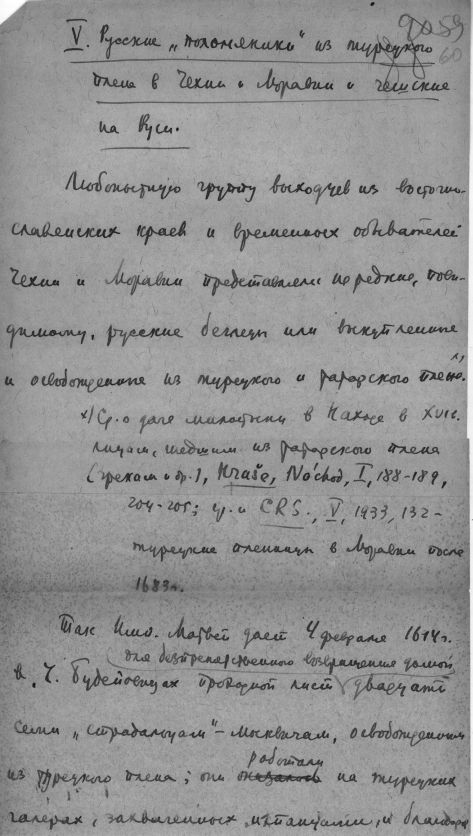 59
60
V. Русские „полоняники" из турецкого
плена в Чехии и Моравии и чешские
на Руси.
Любопытную группу выходцев из восточно-
славянских краев и временных обывателей
Чехии и Моравии представляли нередкие, пови-
димому, русские беглецы или выкупленные
и освобожденные из турецкого и татарского плена. х)
х) Ср. о даче милостыни в Находе в XVII в.
лицам, шедшим из татарского плена
(грекам и др.), Hraše, Náchod, I, 188-189,
204-205; ср. и CRS., V, 1933, 132-
турецкие пленницы в Моравии после
1683 г.
Так Имп. Матвей дает 4 февраля 1614 г.
для безпрепятственного возвращения домой
в Ч. Будейовицах проходной лист двадцати
семи „страдальцам"- москвичам, освобожденным
работали
из турецкого плена; они оказались на турецких
галерах, захваченных испанцами, и благодаря